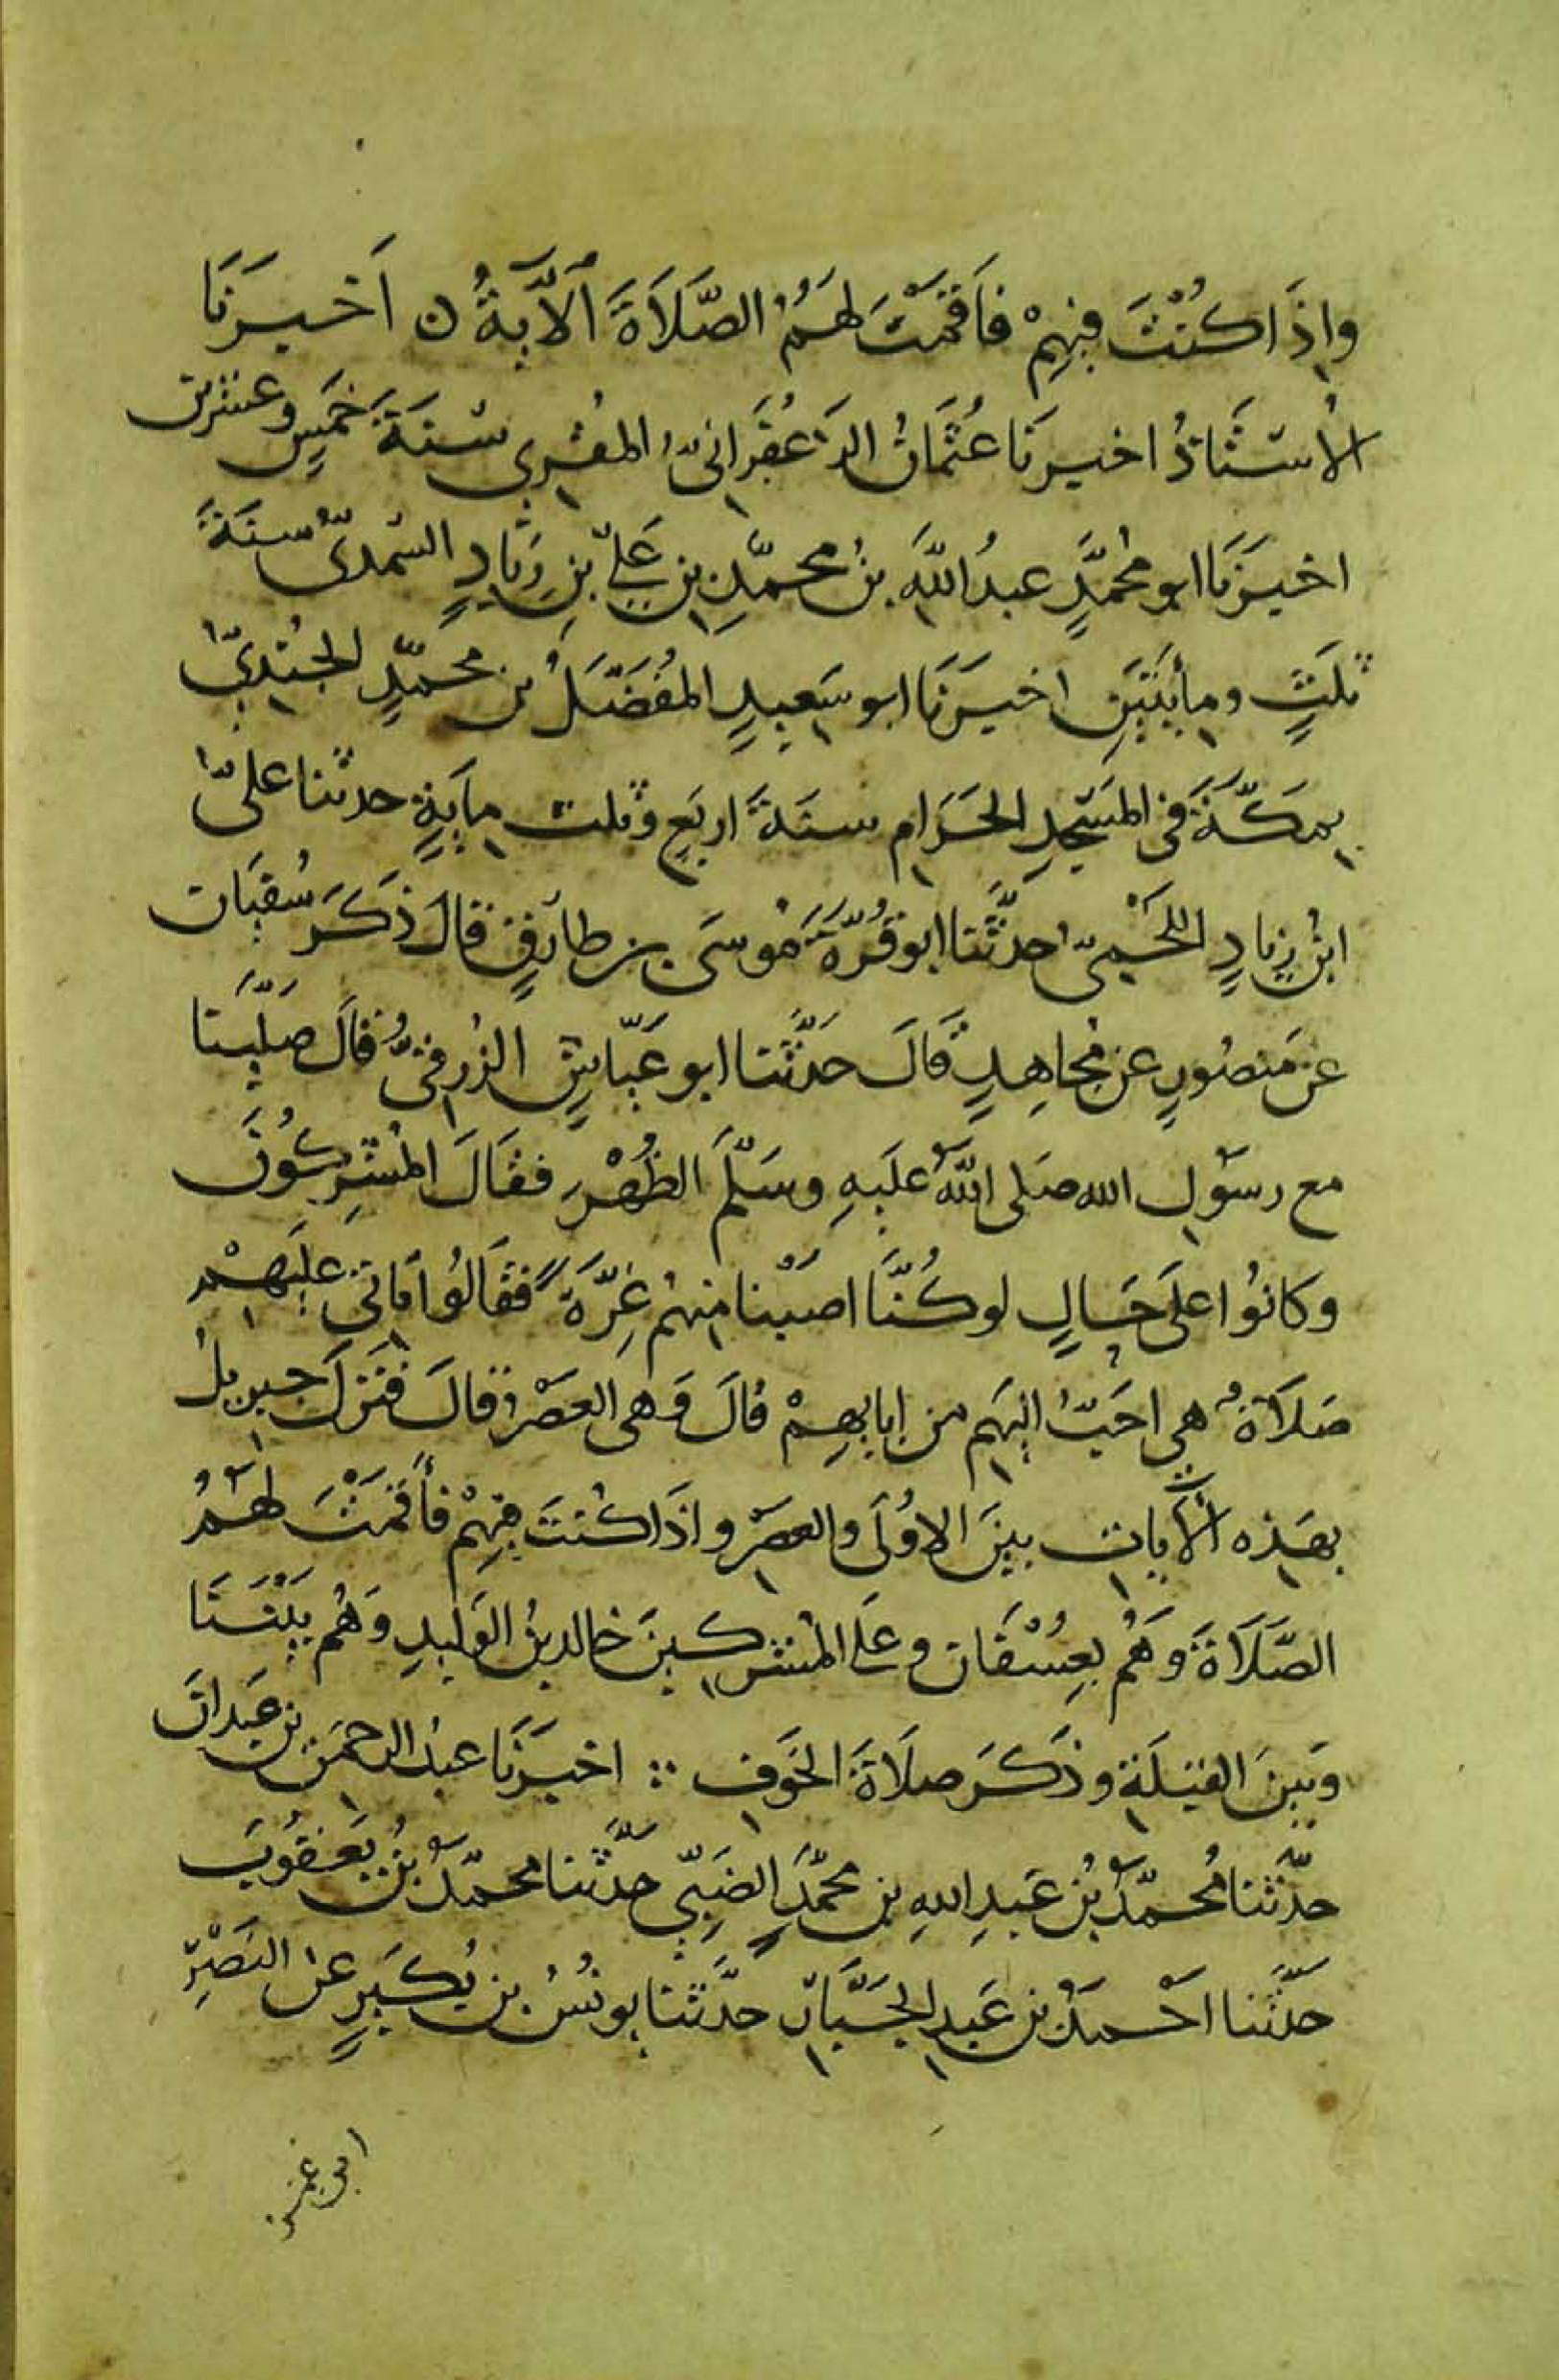 وإِذَا كُنْتَ فِيهِمْ فَأَقَمْتَ لَهُمُ الصَّلَاةَ الآيَةُ ن أَخْبَرَنَا
الأُسْتَاذُ اخبرنَا عُثْمَانُ الزَعْفَرَانىُّ المُقْرِي سَنَةَ خَمسٍ وعشرين
اخبَرَنَا ابو مُحَمَّدٍ عبدُ اللَّهِ بنُ محمَّدِ بنِ عَلِيّ بنِ زِيَادٍ السّمّدىُّ سنَةَ
ثلَثٍ ومِأيتَيَنِ اخبَرَنَا ابو سَعِيدٍ المُفَضَّلُ بن محمَّدٍ الجَنَدِيّ
بِمَكّةَ فى المَسْجِدِ الحَرَامِ سنَةَ اربَعٍ وثلث مِأيَةٍ حدثنا علىّ
ابنُ زِيادٍ اللَّحْمِىّ حدَّثَنا ابو قُرَّةَ مُوسَى بن طارِقٍ قالَ ذَكَرَ سُفيَان
عَن مَنصُورٍ عن مُجاهِدٍ قَالَ حَدَّثَنا ابو عَيّاشٍ الزُرقىُّ قَالَ صَلَّيْنَا
مع رسَوُلِ الله صَلى اللَّهُ علَيهِ وسَلَّمَ الظُهْرَ فقَالَ المُشْرِكُونَ
وكانُوا علَى حَالٍ لوكُنَّا اصَبْنا مِنهُم غِرَّةً فقَالُوا تَاتى علَيهِمْ
صَلَاةٌ هِي احَبُّ اليهِم من ابايهِمْ قَالَ وَهى العَصْرُ قالَ فنَزلَ جبريلُ
بهَذِه الأياتِ بينَ الاوُلَى والعصَرِ واذَا كُنتَ فِيهِمْ فَأقَمْتَ لَهُمُ
الصَّلَاةَ وَهُم بعِسُفَان وعَلى المُشرِكينَ خالدبنُ الوَليدِ وَهُم بَيْنَنَا
وَبينَ القِبلَةِ وذكَرَ صلَاةَ الخَوفِ ∴ اخبَرَنَا عبدُ الرحمَنِ بن عَبدانَ
حدَّثنا مُحمَّدُ بنُ عَبدِ اللهِ بن محمَّدٍ الضَبِّي حدَّثَنا محمّدُ بنُ يَعقُوبَ
حدَّثَنا احْمدُ بن عَبدِ الجَبَّارِ حدَّثنا يونسُ بن بُكَيرٍ عن النَضْرِ
ابى عمر